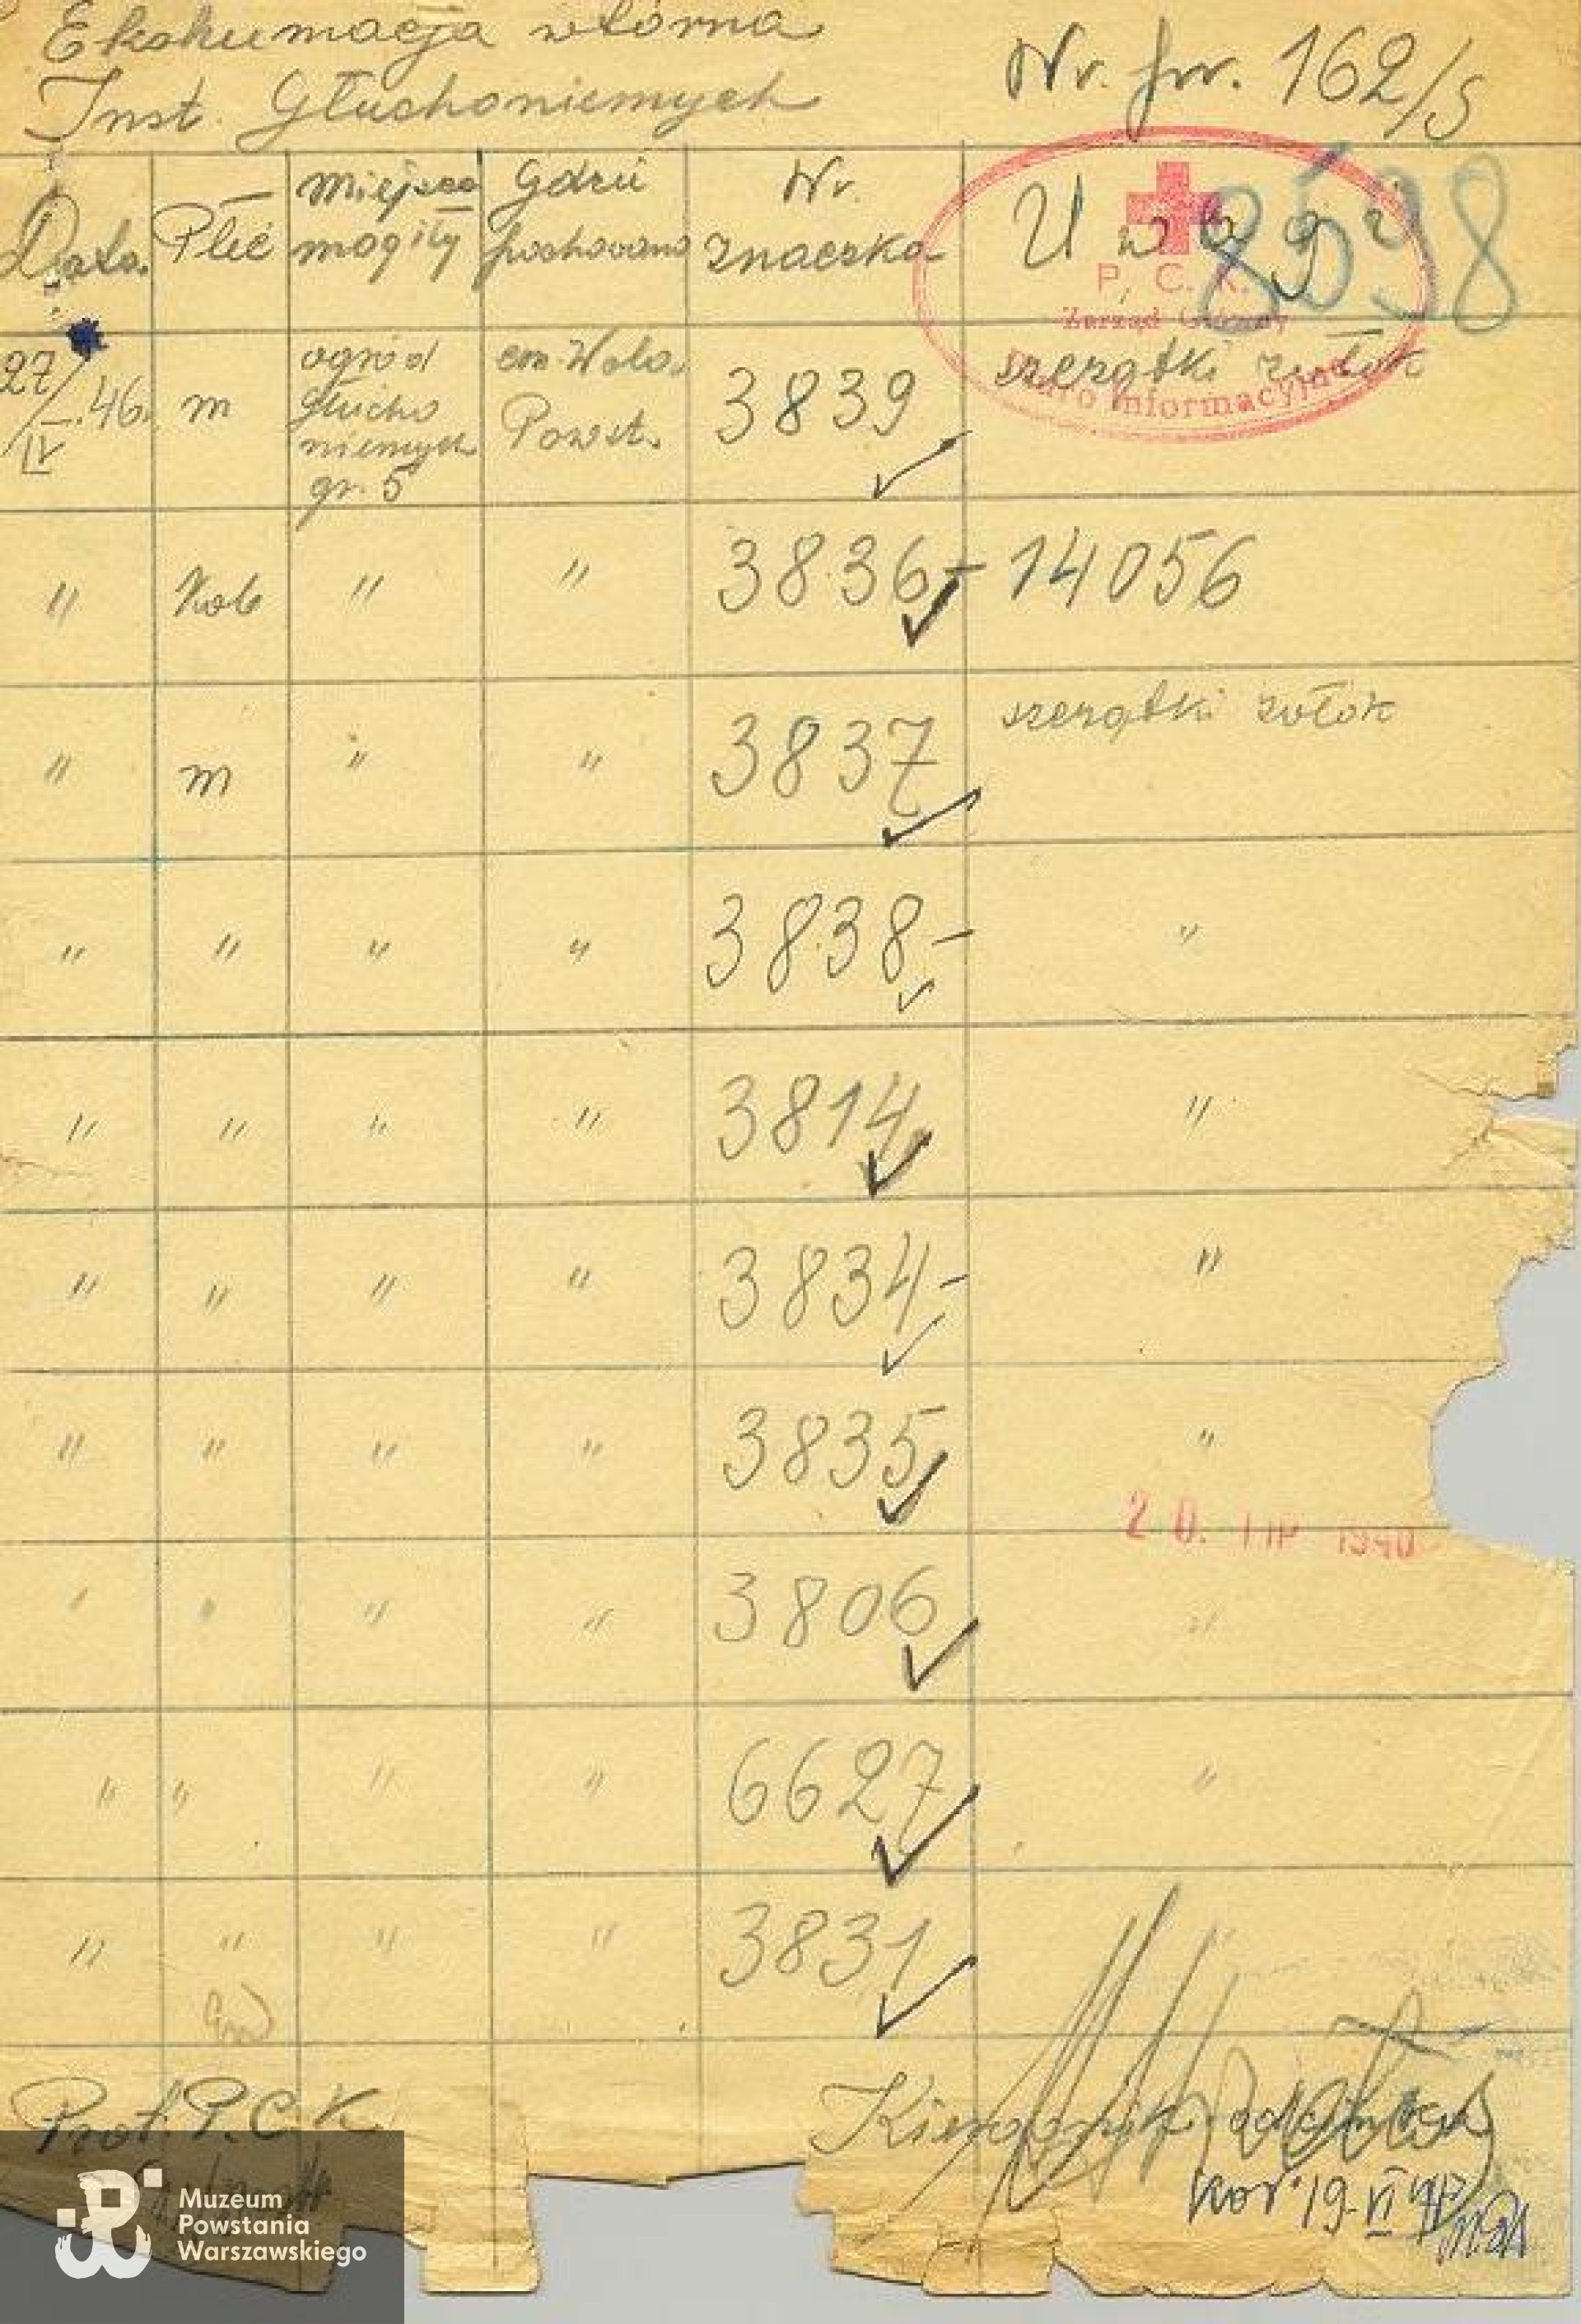 Ekshumacja wtórna
Inst. Głuchoniemych
Nr. pr. 162/5
8598
Data Płeć Miejsce mogiły Gdzie pochowano Nr. znaczka Uwagi
P. C. K.
Zarząd Główny
Biuro Informacyjne
27/IV.46. m ogród głucho niemych gr. 5 cm. Wola. Powst. 3839 szczątki zwłok
" Kob " " 3836 - 14056
" m " " 3837 szczątki zwłok
" " " " 3838 - "
" " " " 3814 "
" " " " 3834 - "
" " " " 3835 "
20. LIP 1946
" " " " 3806 "
" " " " 6627 "
" " " " 3831
Prot. P.C.K.
Kierownik
kor. 19.VI
Muzeum
Powstania
Warszawskiego